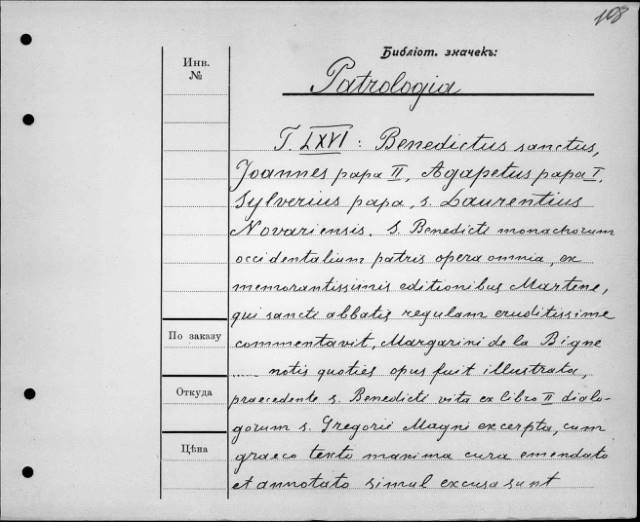 108
Библіот. значекъ:
Инв.
№
Patrologia
T. LXVI: Benedictus sanctus,
Joannes papa II, Agapetus papa I,
Sylverius papa, s. Laurentius
Novariensis. S. Benedicti monachorum
occidentalium patris opera omnia, ex
memorantissimis editionibus Martene,
qui sancti abbatis regulam eruditissime
commentavit, Margarini de la Bigne
..... notis quoties opus fuit illustrata,
praecedente s. Benedicti vita ex libro II dialo-
gorum s. Gregorii Magni excerpta, cum
graeco texto maxima cura emendato
et annotato simul excusa sunt
По заказу
Откуда
Цѣна